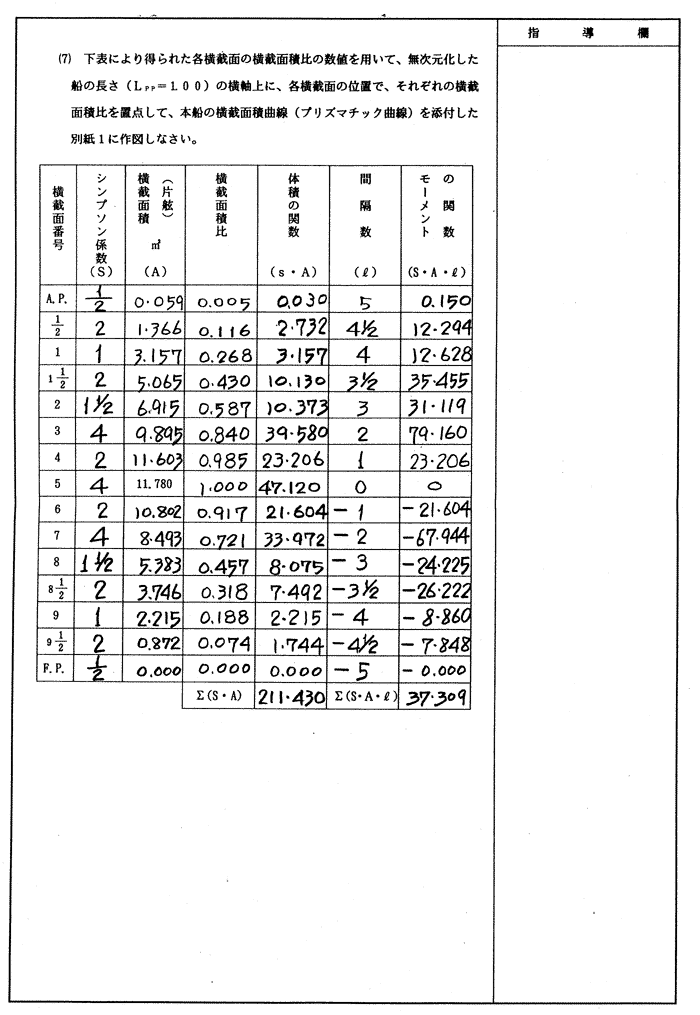 指 導 欄
(7) 下表により得られた各横截面の横截面積比の数値を用いて、無次元化した
船の長さ(LPP=1.00)の横軸上に、各横截面の位置で、それぞれの横截
面積比を置点して、本船の横截面積曲線(プリズマチック曲線)を添付した
別紙1に作図しなさい。
横截面番号 シンプソン係数(S) 横截面積(片舷)㎡(A) 横截面積比 体積の関数(s・A) 間隔数(ℓ) モーメントの関数(S・A・ℓ)
A.P. 1/2 0.059 0.005 0.030 5 0.150
1/2 2 1.366 0.116 2.732 4½ 12.294
1 1 3.157 0.268 3.157 4 12.628
1 1/2 2 5.065 0.430 10.130 3½ 35.455
2 1½ 6.915 0.587 10.373 3 31.119
3 4 9.895 0.840 39.580 2 79.160
4 2 11.603 0.985 23.206 1 23.206
5 4 11.780 1.000 47.120 0 0
6 2 10.802 0.917 21.604 -1 -21.604
7 4 8.493 0.721 33.972 -2 -67.944
8 1½ 5.383 0.457 8.075 -3 -24.225
8 1/2 2 3.746 0.318 7.492 -3½ -26.222
9 1 2.215 0.188 2.215 -4 -8.860
9 1/2 2 0.872 0.074 1.744 -4½ -7.848
F.P. 1/2 0.000 0.000 0.000 -5 -0.000
Σ(S・A) 211.430 Σ(S・A・ℓ) 37.309